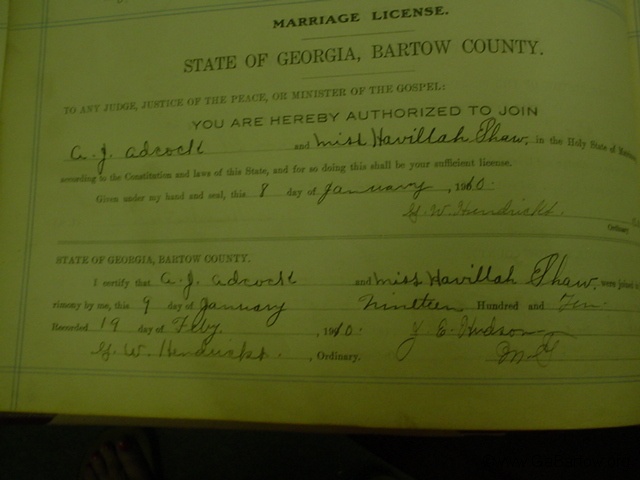 MARRIAGE LICENSE.
STATE OF GEORGIA, BARTOW COUNTY.
TO ANY JUDGE, JUSTICE OF THE PEACE, OR MINISTER OF THE GOSPEL:
YOU ARE HEREBY AUTHORIZED TO JOIN
A. J. Adcock and Miss Havillah Shaw, in the Holy State of
according to the Constitution and laws of this State, and for so doing this shall be your sufficient license.
Given under my hand and seal, this 8 day of January, 1910.
G. W. Hendricks.
Ordinary
STATE OF GEORGIA, BARTOW COUNTY.
I certify that A. J. Adcock and Miss Havillah Shaw, were joined
rimony by me, this 9 day of January Nineteen Hundred and Ten
Recorded 19 day of Feby. , 1910. J. E. Hudson
G. W. Hendricks. , Ordinary. M G